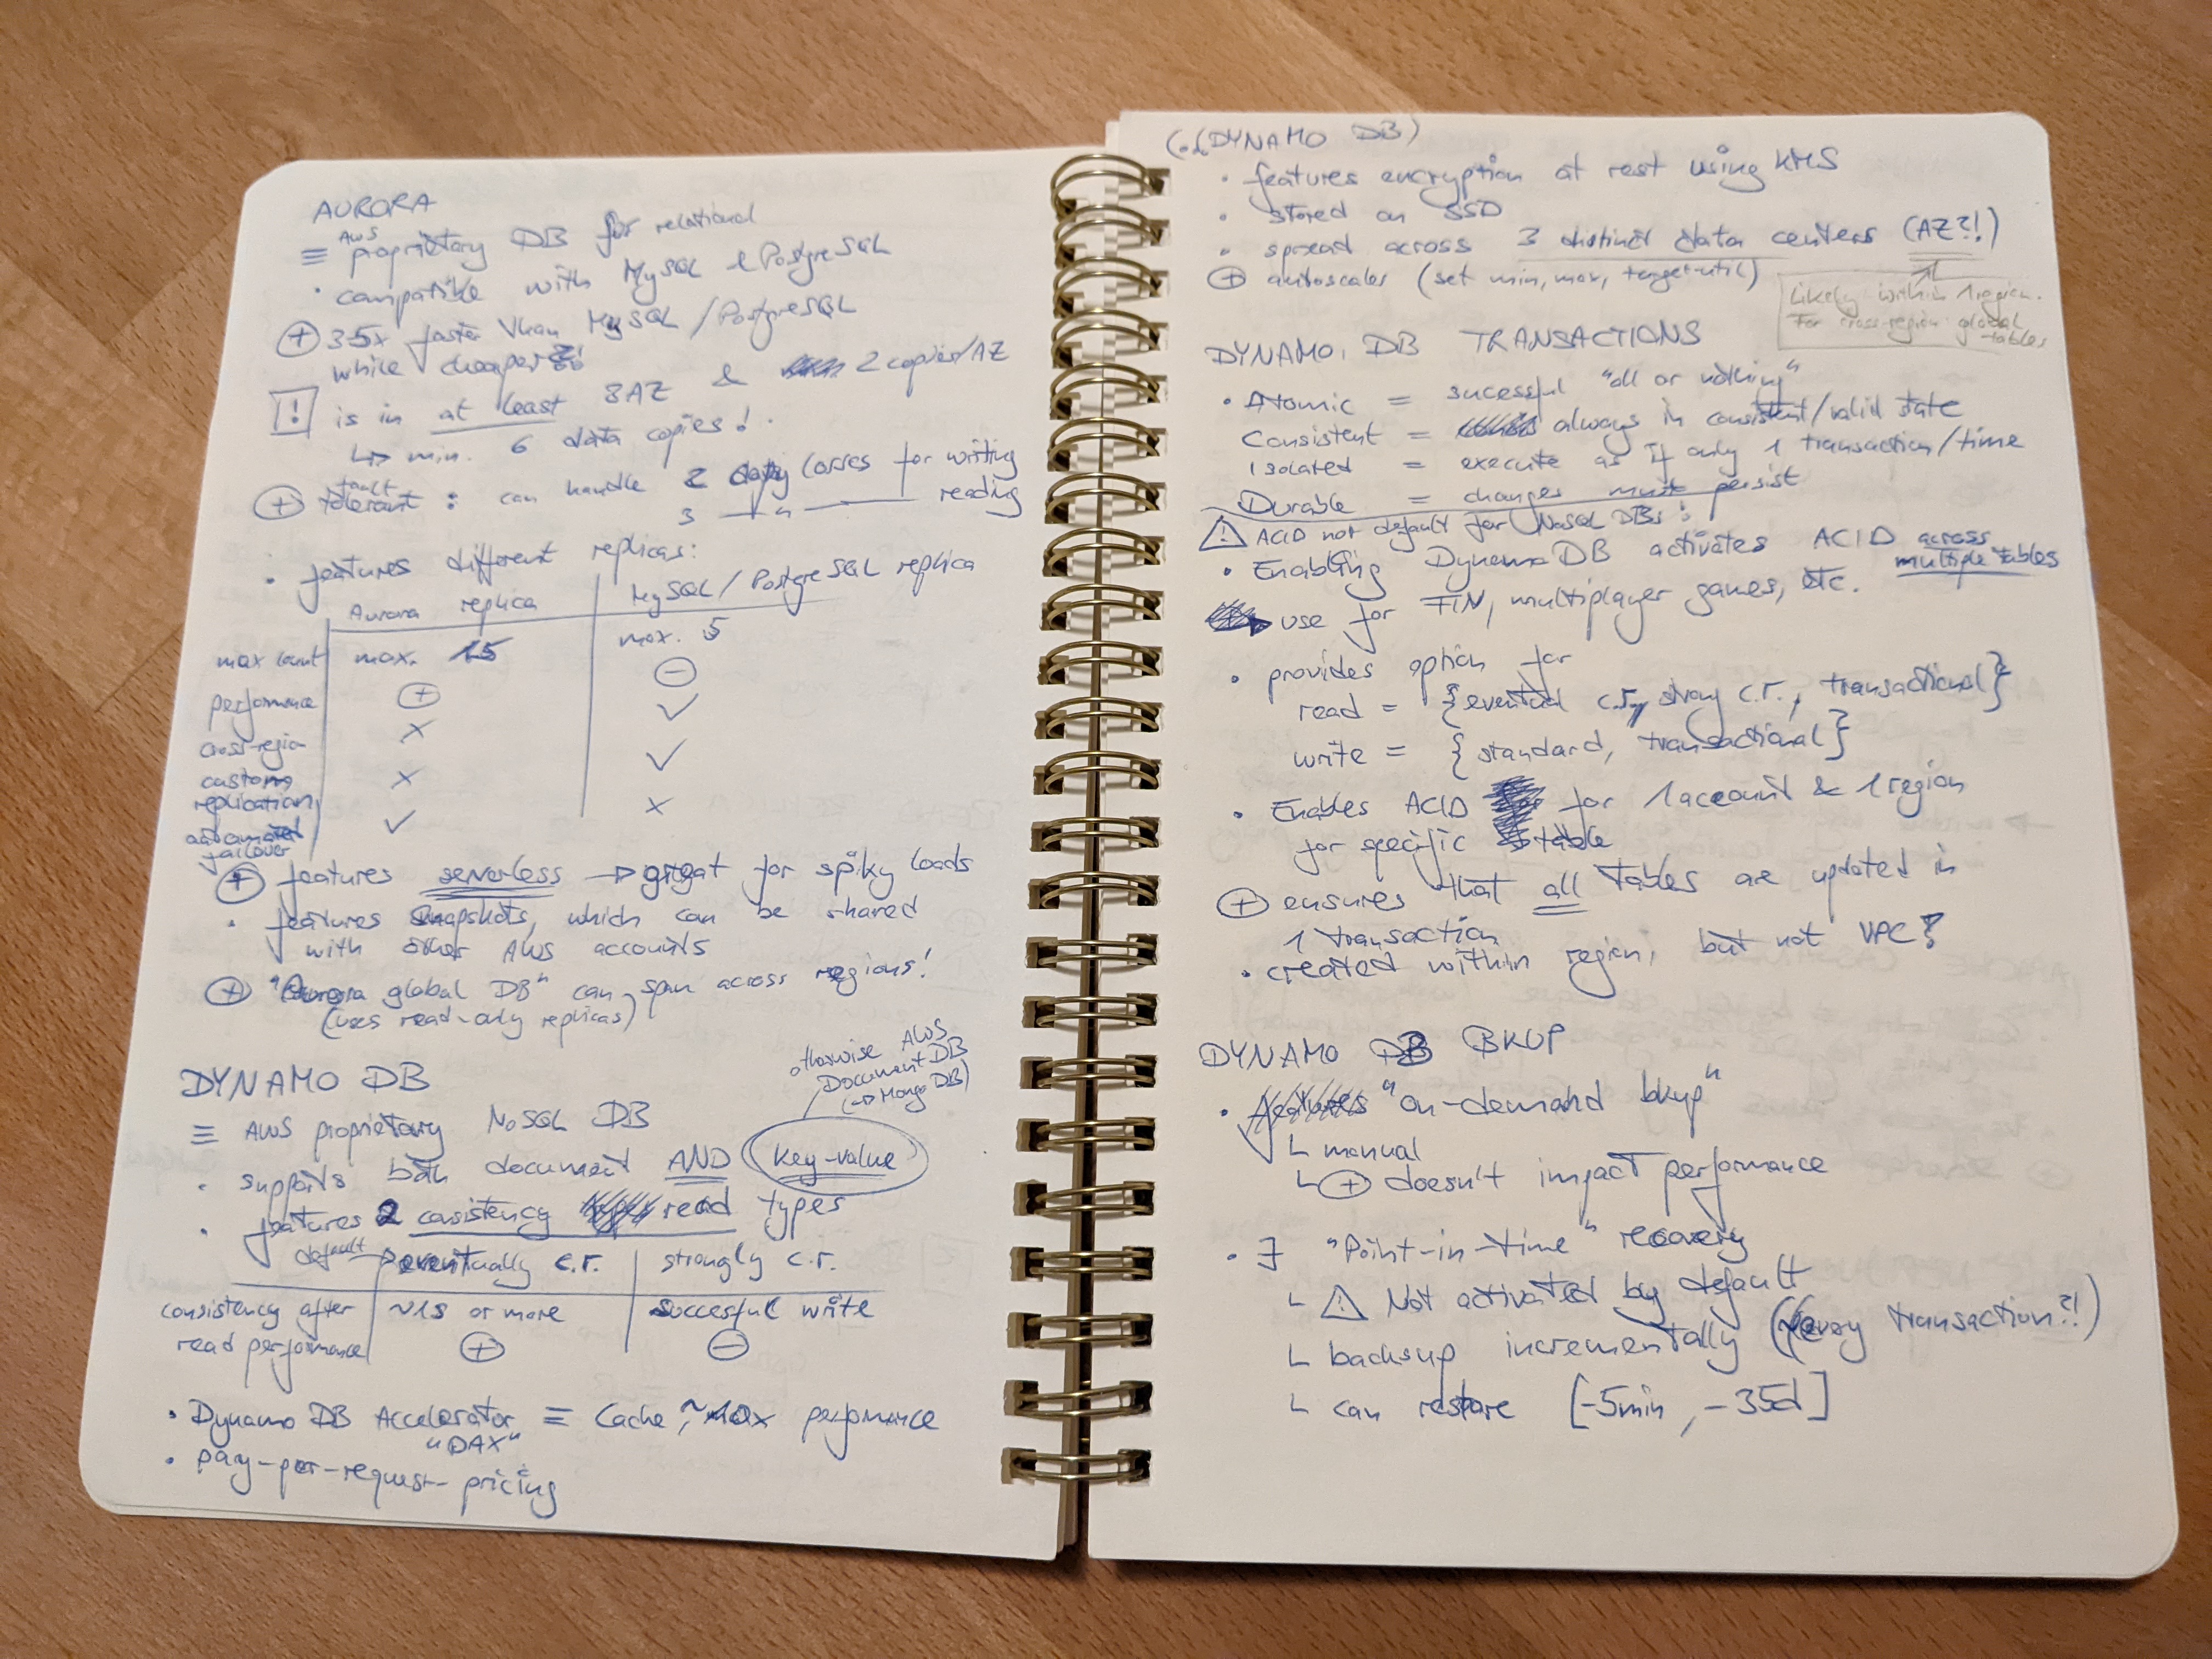 AURORA
≡ AWS proprietary DB for relational
· compatible with MySQL & PostgreSQL
⊕ 3-5x faster than MySQL / PostgreSQL
while cheaper
! is in at least 3AZ & 2 copies/AZ
↳ min. 6 data copies!
⊕ fault tolerant : can handle 2 copy losses for writing
3 —"— reading
· features different replicas:
Aurora replica | MySQL / PostgreSQL replica
max count | max. 15 | max. 5
performance | ⊕ | ⊖
cross-region | × | ✓
custom replication | × | ✓
automated failover | ✓ | ×
⊕ features serverless → great for spiky loads
· features snapshots, which can be shared
with other AWS accounts
⊕ "Aurora global DB" can span across regions!
(uses read-only replicas)
DYNAMO DB
≡ AWS proprietary NoSQL DB
otherwise AWS
Document DB
(→ Mongo DB)
· supports both document AND key-value
· features 2 consistency read types
default → eventually c.r. | strongly c.r.
consistency after | ~1s or more | succesful write
read performance | ⊕ | ⊖
· Dynamo DB Accelerator ≡ Cache, ~10x performance
"DAX"
· pay-per-request-pricing
(DYNAMO DB)
· features encryption at rest using KMS
· stored on SSD
· spread across 3 distinct data centers (AZ?!)
⊕ autoscaler (set min, max, target-util)
Likely within 1 region.
For cross-region: global
tables
DYNAMO DB TRANSACTIONS
· Atomic = sucessful "all or nothing"
Consistent = always in consistent/valid state
Isolated = execute as if only 1 transaction/time
Durable = changes must persist
⚠ ACID not default for NoSQL DBs!
· Enabling DynamoDB activates ACID across
multiple tables
→ use for FIN, multiplayer games, etc.
· provides option for
read = {eventual c.r., strong c.r., transactional}
write = {standard, transactional}
· Enables ACID for 1 account & 1 region
for specific table
⊕ ensures that all tables are updated in
1 transaction
· created within region, but not VPC?
DYNAMO DB BKUP
· "on-demand bkup"
└ manual
└ ⊕ doesn't impact performance
· ∃ "Point-in-time" recovery
└ ⚠ Not activated by default
└ backup incrementally (every transaction?!)
└ can restore [-5min, -35d]